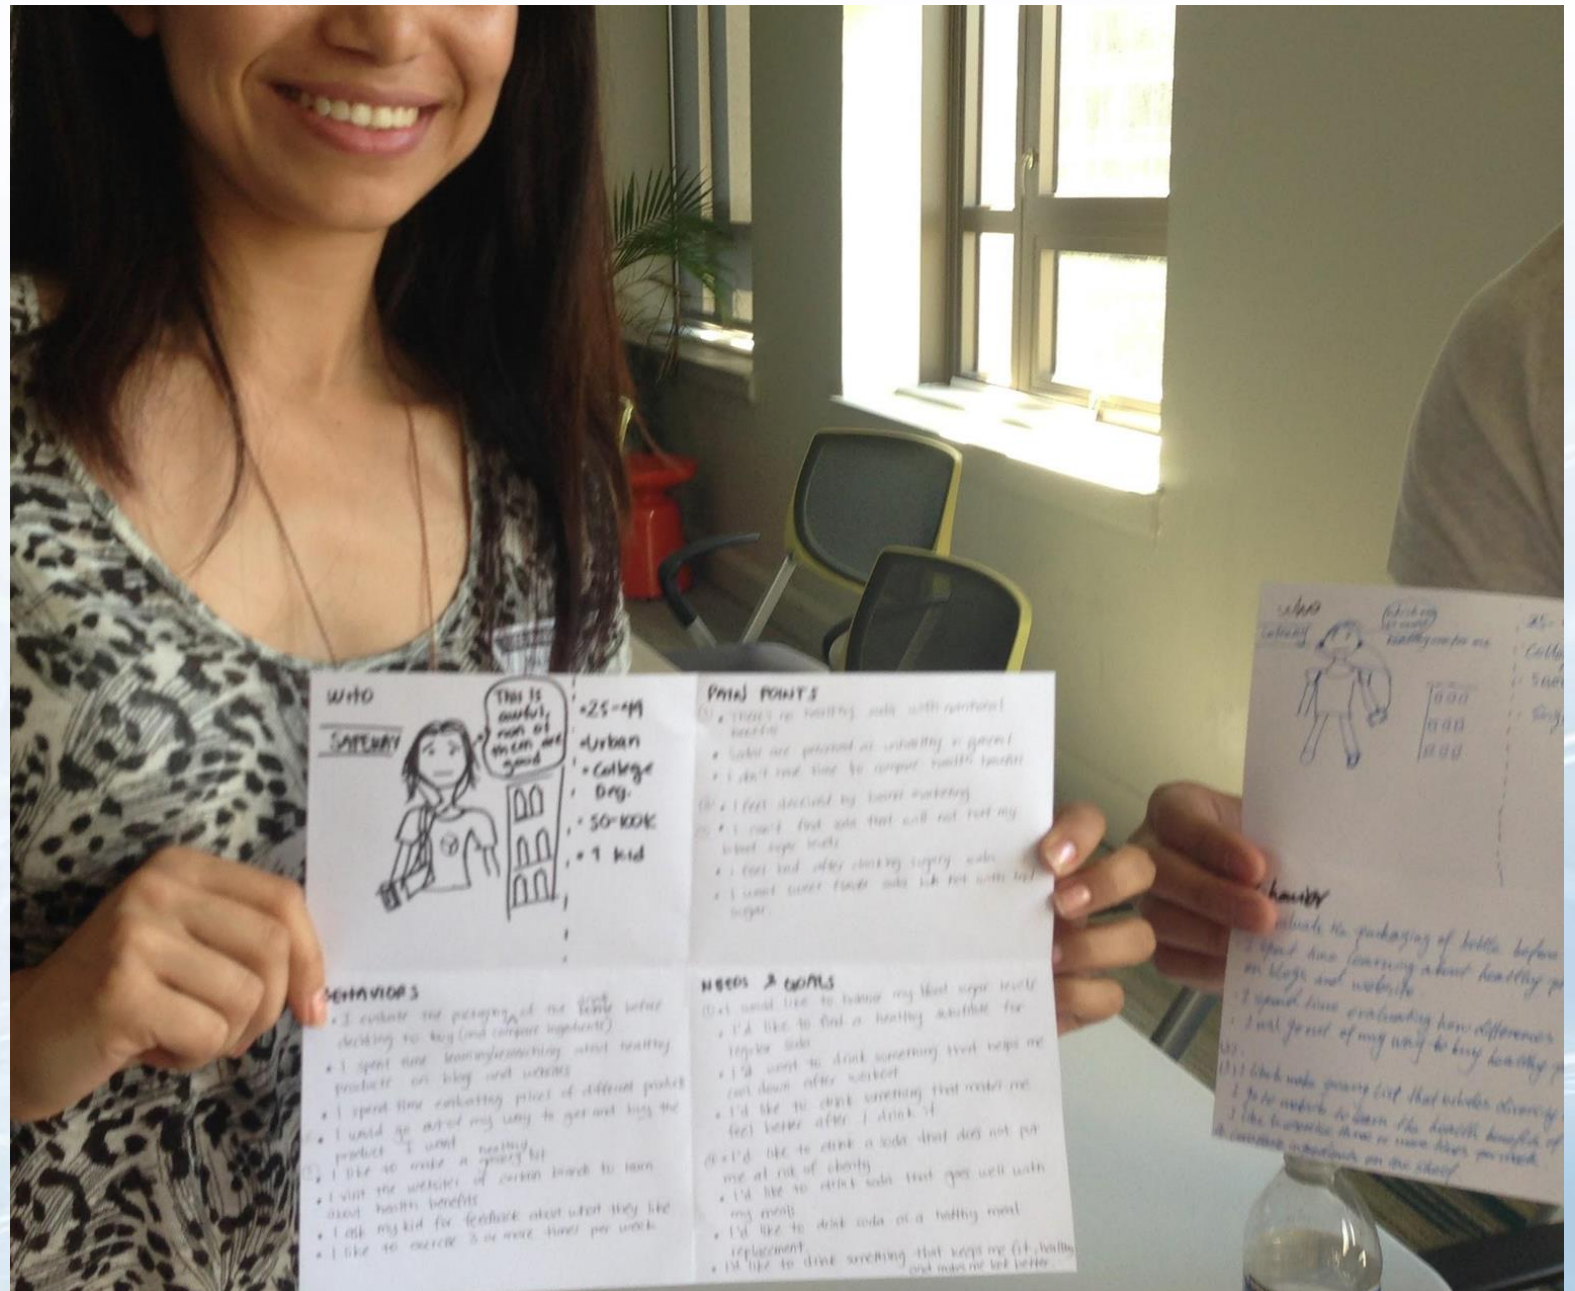 WHO
SAFEWAY
This is
awful,
non of
them are
good
• 25-49
• Urban
• College
Deg.
• 50-100K
• 1 kid
PAIN POINTS
• There's no healthy soda with nutritional
benefits
• Sodas are perceived as unhealthy in general
• I don't have time to compare health benefits
• I feel deceived by
marketing
• I can't find soda that will not hurt my
blood sugar levels
• I feel bad after drinking sugary soda
• I want sweet flavor soda but not with
sugar.
BEHAVIORS
• I evaluate the packaging of the bottle before
deciding to buy (and compare ingredients)
• I spent time learning/researching about healthy
products on blog and websites
• I spend time evaluating prices of different product
• I would go out of my way to get and buy the
product I want
• I like to make a grocery list
• I visit the websites of certain brands to learn
about health benefits
• I ask my kid for feedback about what they like
• I like to exercise 3 or more times per week
NEEDS & GOALS
• I would like to
my blood sugar levels
• I'd like to find a healthy substitute for
regular soda
• I'd want to drink something that helps me
cool down after workout
• I'd like to drink something that makes me
feel better after I drink it
• I'd like to drink a soda that does not put
me at risk of obesity
• I'd like to drink soda that goes well with
my meals
• I'd like to drink soda as a healthy meal
replacement
• I'd like to drink something that keeps me fit, healthy
and makes me look better
who
25-
evaluate the packaging of bottle before
I spent time learning about healthy
on blogs and website
I spend time evaluating how differences
I will go out of my way to buy healthy
I like to make grocery list that includes
I go to website to learn the health benefits of
I like to exercise three or more times per week
on the shelf